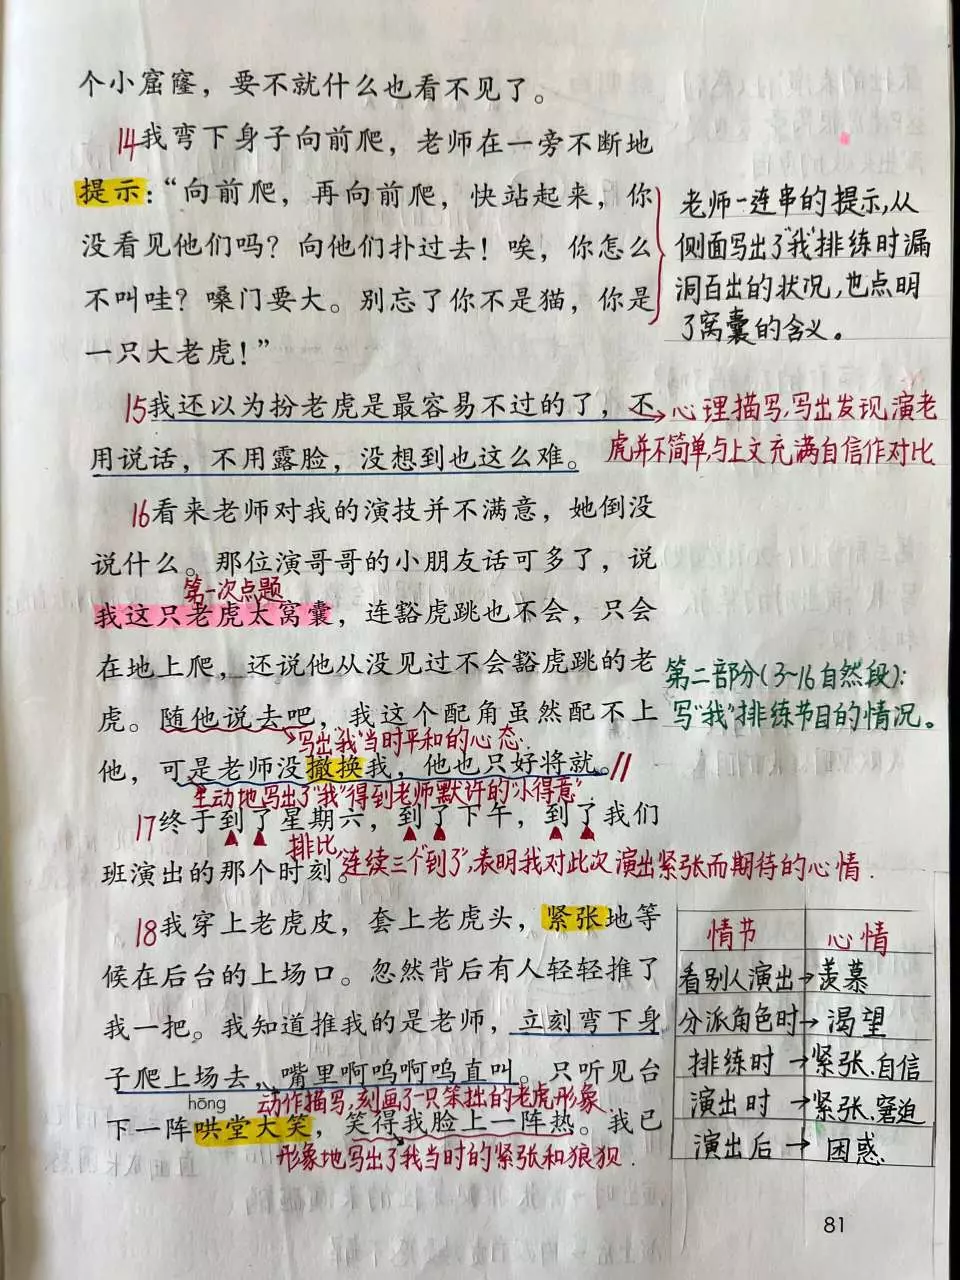 个小窟窿，要不就什么也看不见了。
14我弯下身子向前爬，老师在一旁不断地
提示：“向前爬，再向前爬，快站起来，你
没看见他们吗？向他们扑过去！唉，你怎么
不叫哇？嗓门要大。别忘了你不是猫，你是
一只大老虎！”
老师一连串的提示,从
侧面写出了“我”排练时漏
洞百出的状况,也点明
了窝囊的含义。
15我还以为扮老虎是最容易不过的了，不
用说话，不用露脸，没想到也这么难。
心理描写,写出发现演老
虎并不简单,与上文充满自信作对比
16看来老师对我的演技并不满意，她倒没
说什么。那位演哥哥的小朋友话可多了，说
第一次点题
我这只老虎太窝囊，连豁虎跳也不会，只会
在地上爬，还说他从没见过不会豁虎跳的老
虎。随他说去吧，我这个配角虽然配不上
写出“我”当时平和的心态.
他，可是老师没撤换我，他也只好将就。//
生动地写出了“我”得到老师默许的“小得意”
第二部分(3~16自然段):
写“我”排练节目的情况。
17终于到了星期六，到了下午，到了我们
排比,
班演出的那个时刻。
连续三个“到了”,表明我对此次演出紧张而期待的心情.
18我穿上老虎皮，套上老虎头，紧张地等
候在后台的上场口。忽然背后有人轻轻推了
我一把。我知道推我的是老师，立刻弯下身
子爬上场去，嘴里啊呜啊呜直叫。只听见台
hōng
动作描写,刻画了一只笨拙的老虎形象.
下一阵哄堂大笑，笑得我脸上一阵热。我已
形象地写出了我当时的紧张和狼狈.
情节 心情
看别人演出→羡慕
分派角色时→渴望
排练时→紧张.自信
演出时→紧张、窘迫
演出后→困惑.
81